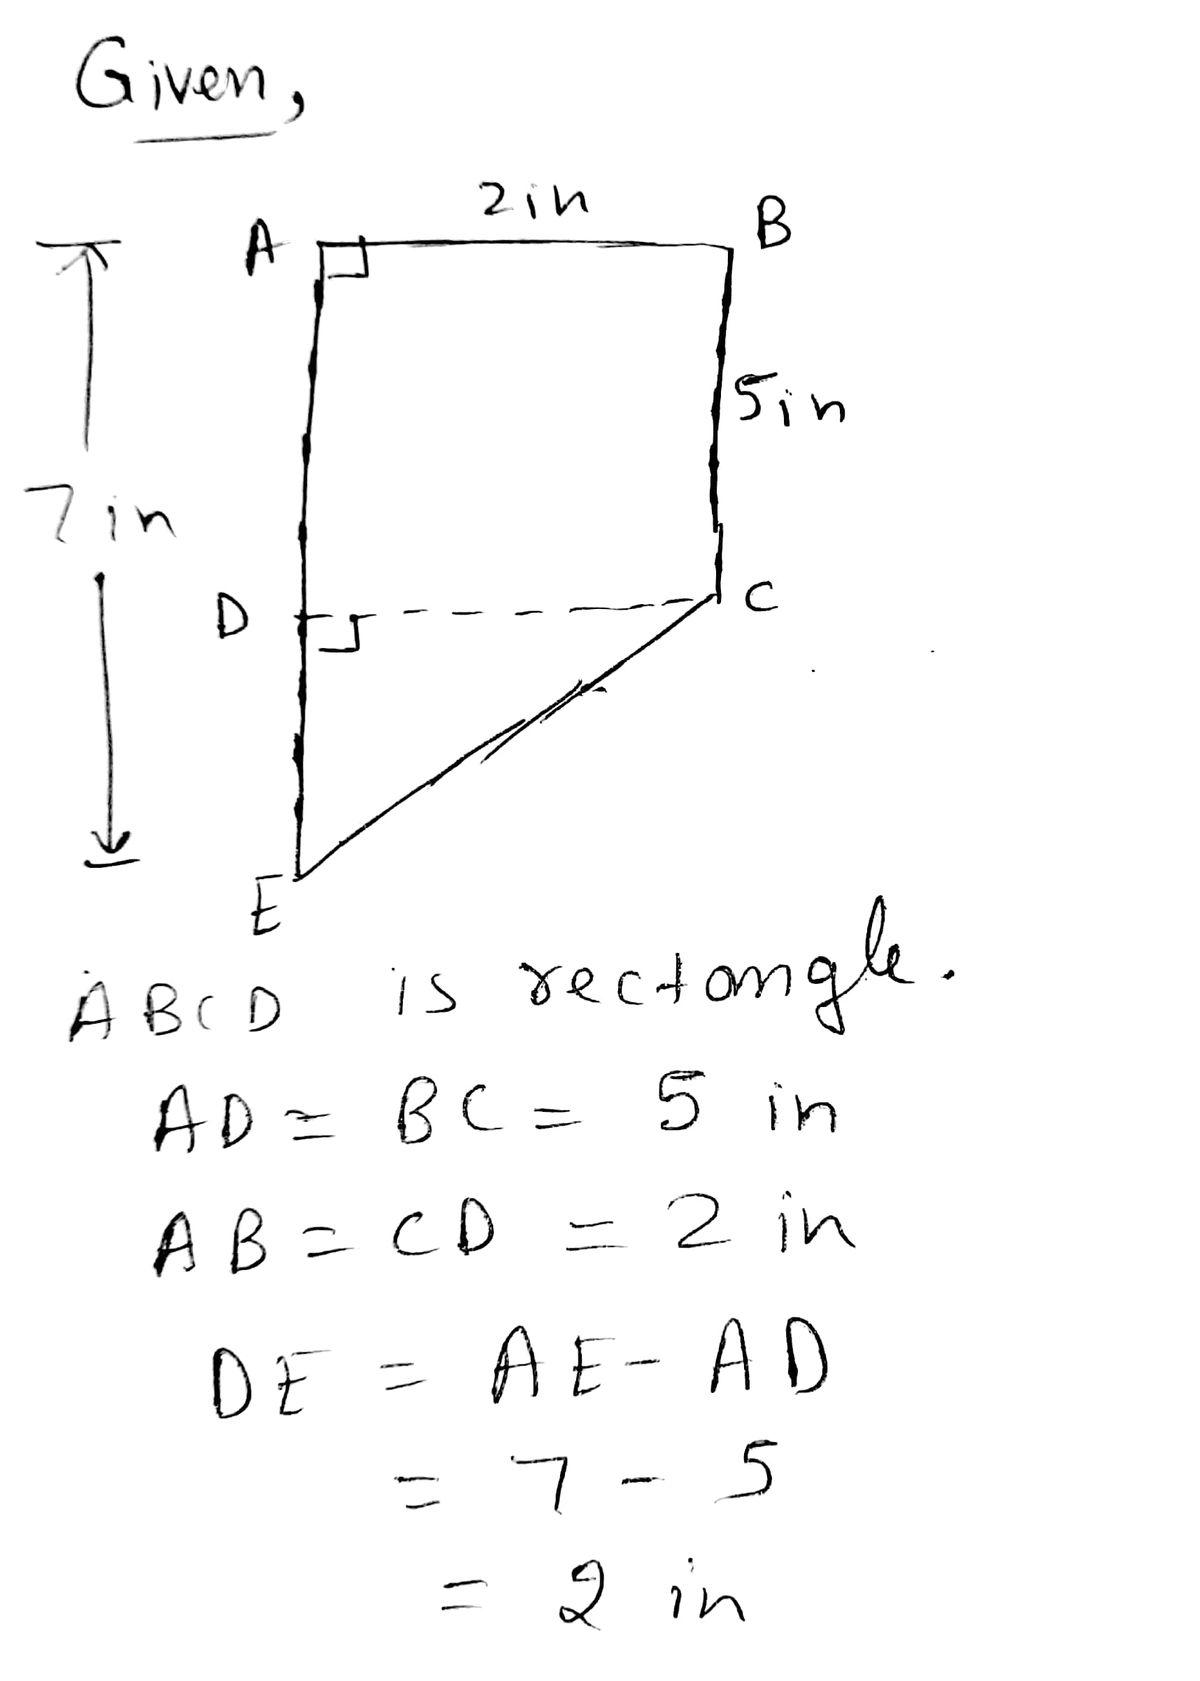 Given,
2in
A
B
5in
7in
D
C
E
ABCD is rectangle.
AD = BC = 5 in
AB = CD = 2 in
DE = AE - AD
= 7 - 5
= 2 in